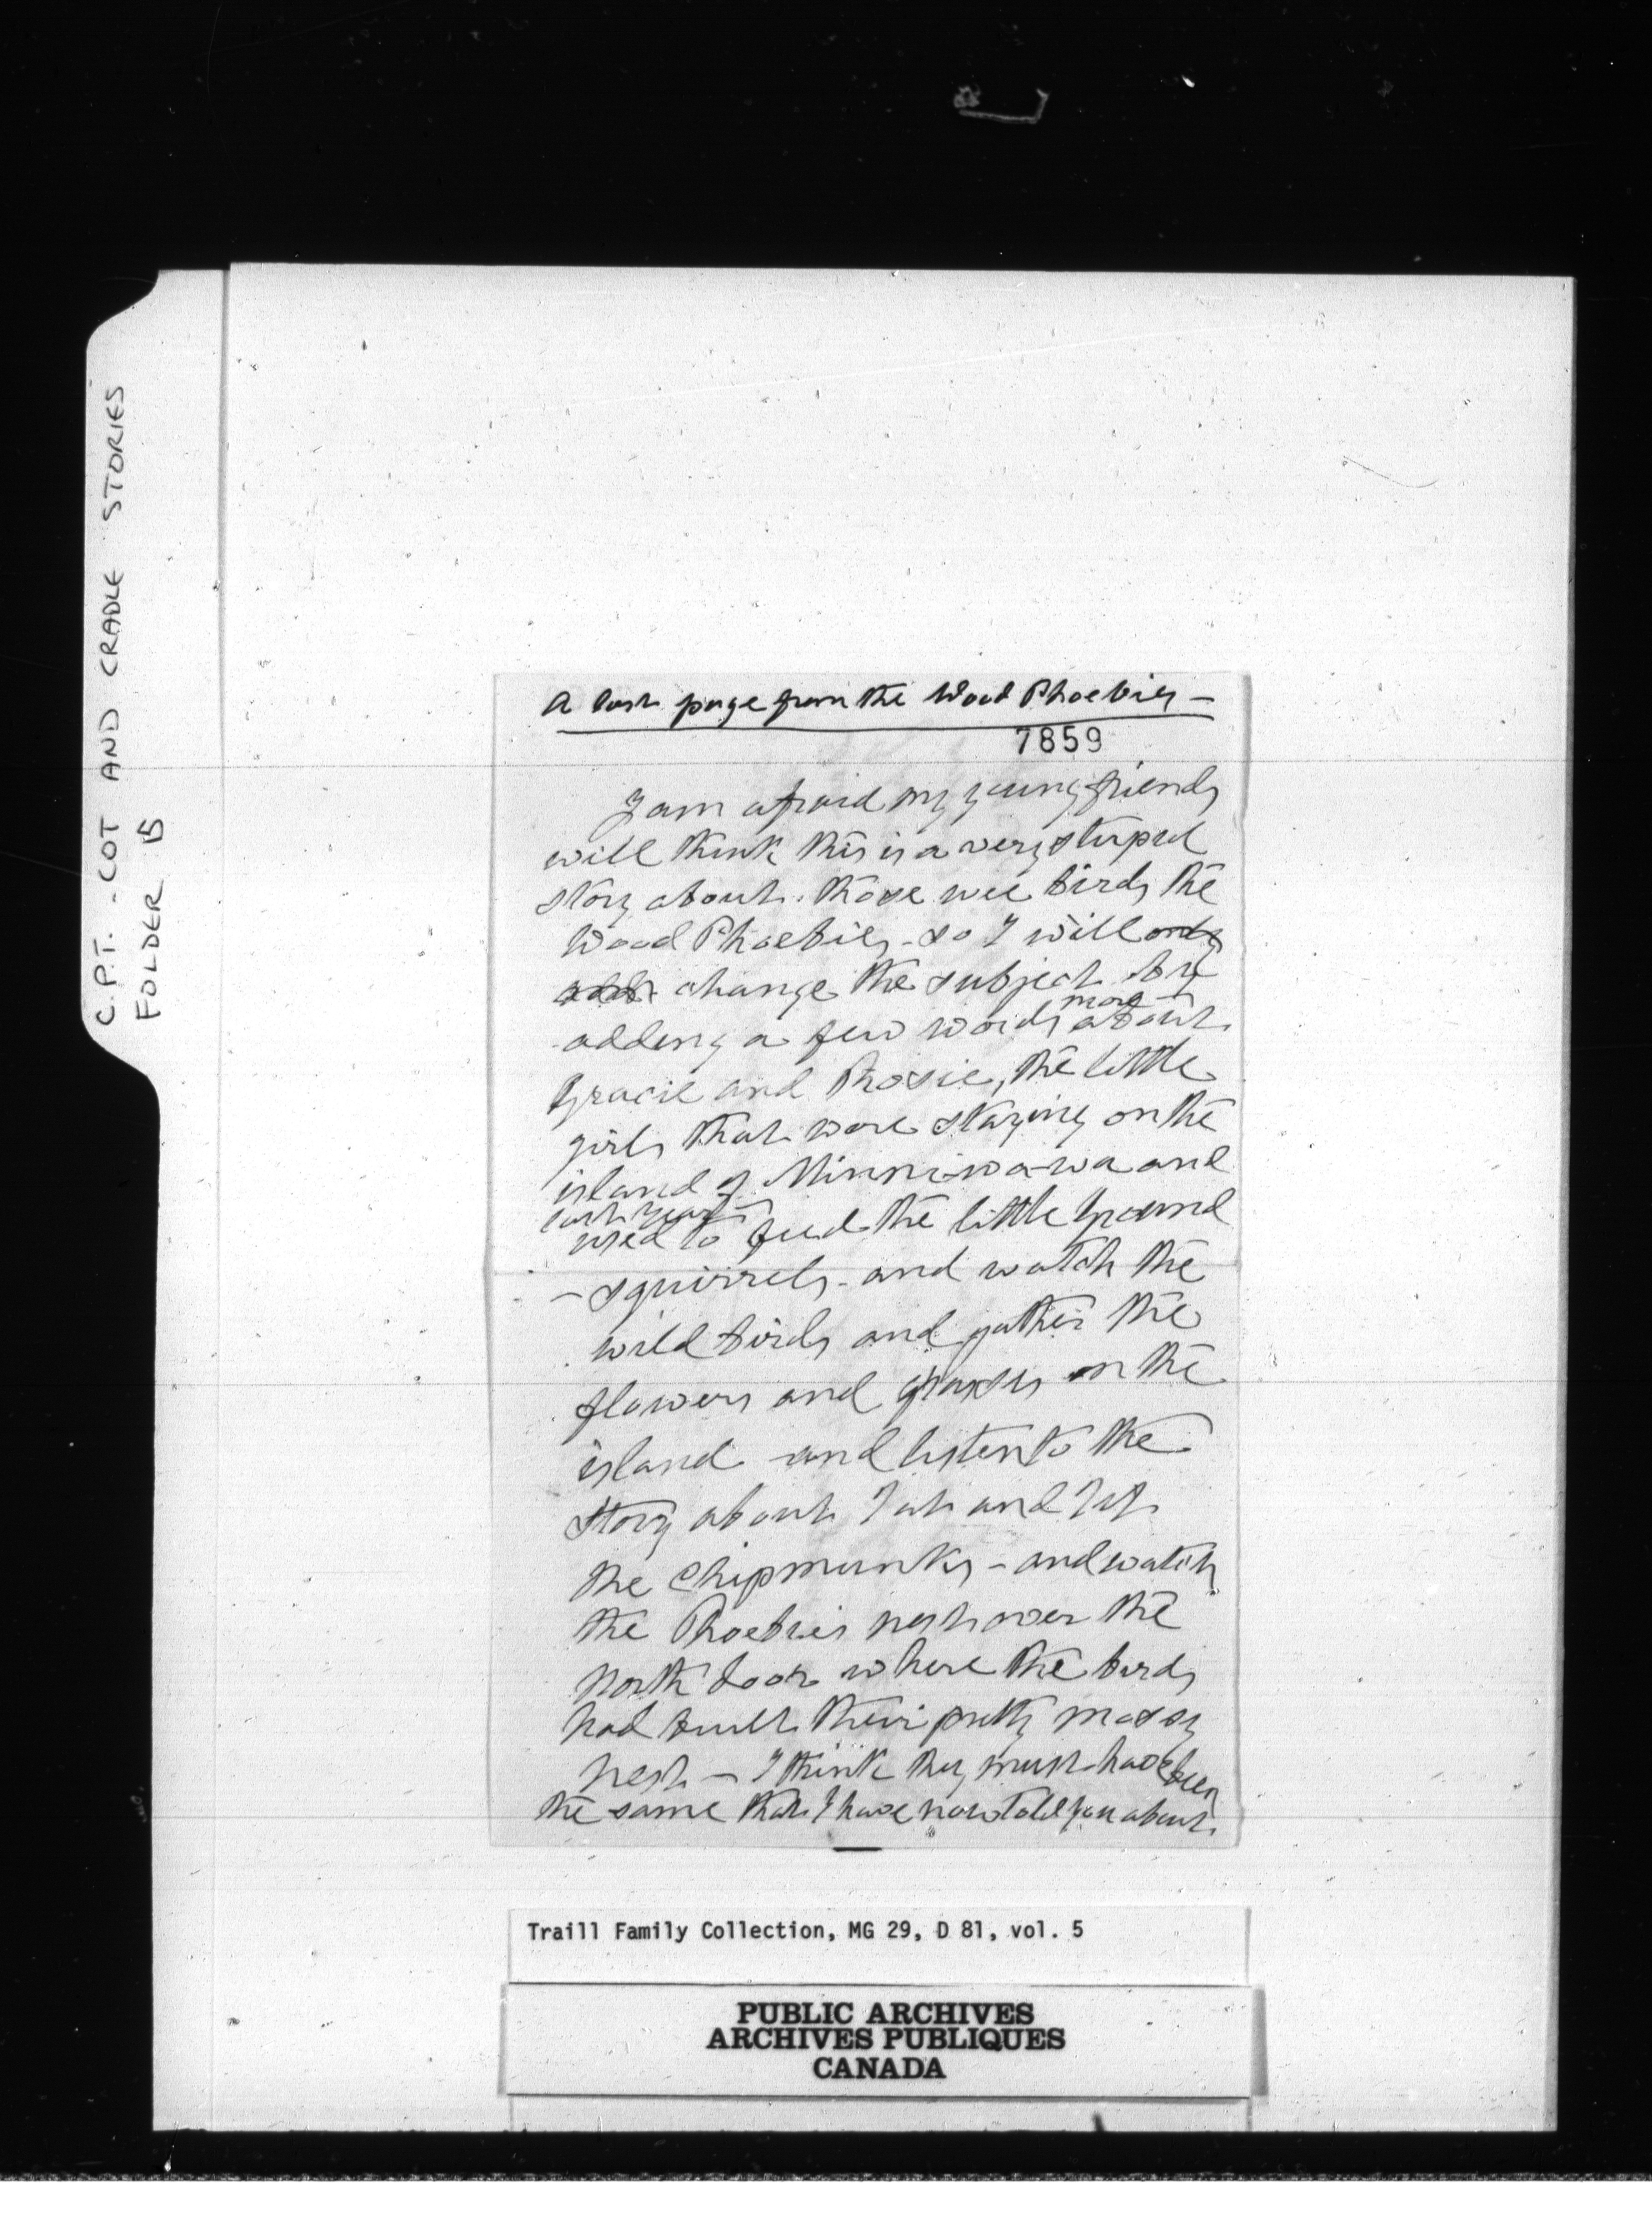 C.P.T. - COT AND CRADLE STORIES
FOLDER B
A last page from the Wood Phoebies —
7859
I am afraid my young friends
will think this is a very stupid
story about those wee birds the
Wood Phoebies - so I will only
change the subject by
adding a few words more about
Gracie and Rosie, the little
girls that were staying on the
island of Minni-wa-wa and
last year
used to feed the little ground
- squirrels - and watch the
wild birds and gather the
flowers and grasses on the
island and listen to the
story about Jah and Jip
the Chipmunks - and watch
the Phoebies nest over the
north door where the birds
had built their pretty mossy
nest — I think they must have been
the same that I have now told you about.
Traill Family Collection, MG 29, D 81, vol. 5
PUBLIC ARCHIVES
ARCHIVES PUBLIQUES
CANADA